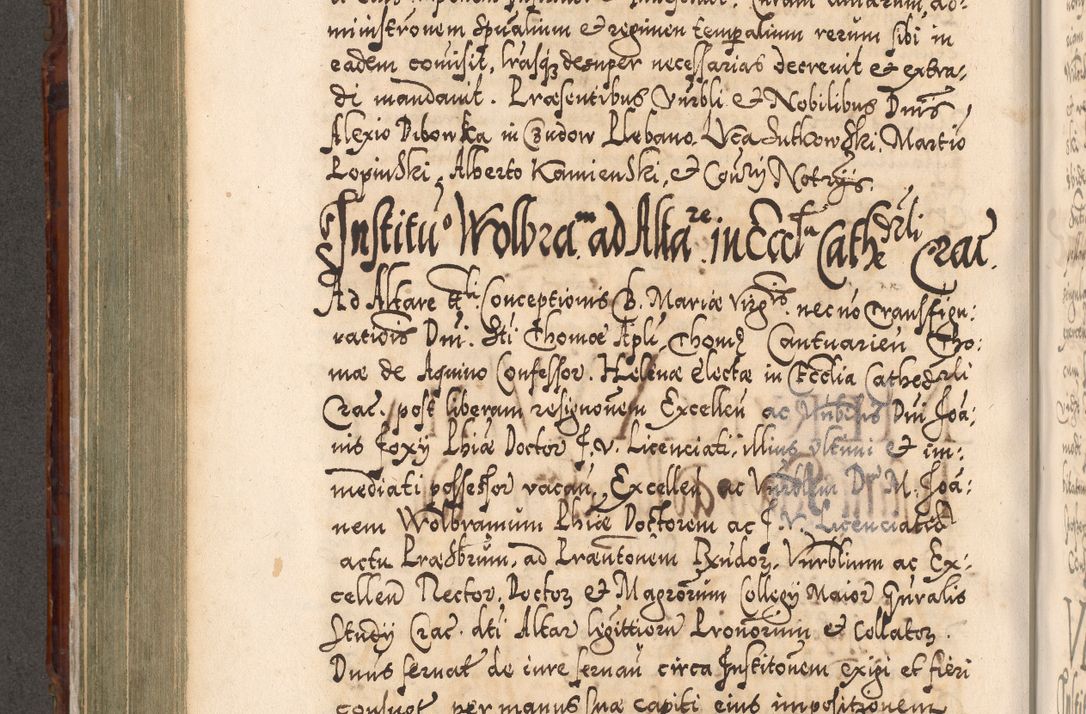 ministronem Spualium et regimen temporalium rerum sibi in
eadem comisit, lrasq desuper necessarias decrevit et extra-
di mandavit. Præsentibus Vnrbli et Nobilibus Dnis
Alexio Dibowska in Budow Plebano Luca Sutkowski, Martio
Lopinski, Alberto Kamienski, et Coury Notrijs.
Institu° Wolbram ad Altare in Eccla Cathedrli Crac.
Ad Altare ttli Conceptionis B. Mariæ Virgis nec nō Transfigu:
rationis Dni. Sti Thomæ Apli, Thomæ Cantuarien Tho:
mæ de Aquino Confessor. Helenæ Electæ in Ecclia Cathedrli
Crac. post liberam resignonem Excellen ac Dni Joā:
nis Foxy Phiæ Doctor J. V. Licenciati, illius vltimi et im:
mediati possessor vacan, Excellen ac Vnrblem Dn M. Joā:
nem Wolbramum Phiæ Doctorem ac J. V. Licenciatū
actu Præsbrum, ad Præntonem Rndor. Vnrblium ac Ex:
cellen Rector. Doctor et Magrorum Collegij Maior Juralis
Studij Crac. dti Altar legittioru Pronorum et Collator.
Dnus servat de iure servan circa Institonem exigi et fieri
consuet per manus suæ capiti eius impositionem